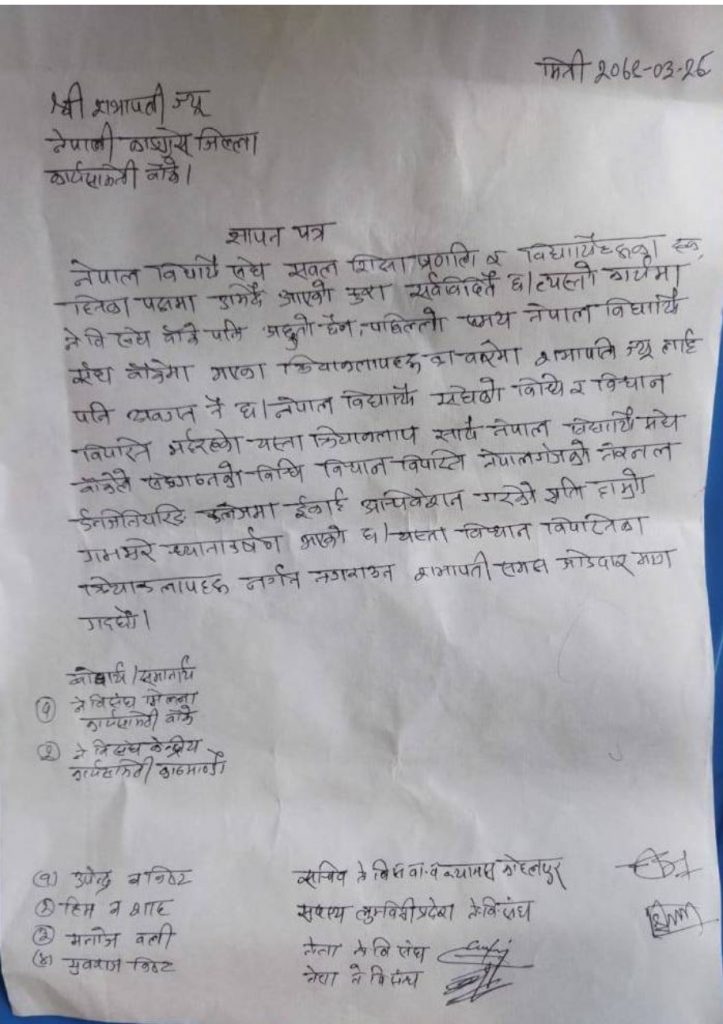 मिती २०७९-०३-२६
श्री सभापती ज्यू
नेपाली काङ्ग्रेस जिल्ला
कार्यसमिती बाँके।
ज्ञापन पत्र
नेपाल विद्यार्थी संघ सवल शिक्षा प्रणालि र विद्यार्थीहरुका हक
हितका पक्षमा आएको कुरा सर्वविदितै छ। त्यस्तो कार्यमा
ने वि संघ बाँके पनि अछुतो छैन, पछिल्लो समय नेपाल विद्यार्थी
संघ बाँकेमा भएका क्रियाकलापहरु का बारेमा सभापति ज्यू लाई
पनि अवगत नै छ। नेपाल विद्यार्थी संघको विधि र विधान
विपरित भईरहेको यस्ता क्रियाकलाप साथै नेपाल विद्यार्थी संघ
बाँकेले संगठनको विधि विधान विपरित नेपालगंजको नेशनल
ईन्जिनियरिङ कलेजमा ईकाई अधिवेशन गरेको प्रति हाम्रो
गम्भीर ध्यानाकर्षण भएको छ। यस्ता विधान विपरितका
क्रियाकलापहरु नगर्न नगराउन सभापती समक्ष जोडदार माग
गर्दछौं।
बोधार्थ/समानार्थ
(१) ने वि संघ जिल्ला
कार्यसमिती बाँके
(२) ने वि संघ केन्द्रीय
कार्यसमिती काठमाण्डौ
(१) उपेन्द्र बस्नेट सचिव ने वि संघ कोहलपुर
(२) हिम ब शाह सदस्य लुम्बिनी प्रदेश ने वि संघ
(३) मनोज वली नेता ने वि संघ
(४) युवराज नेता ने वि संघ